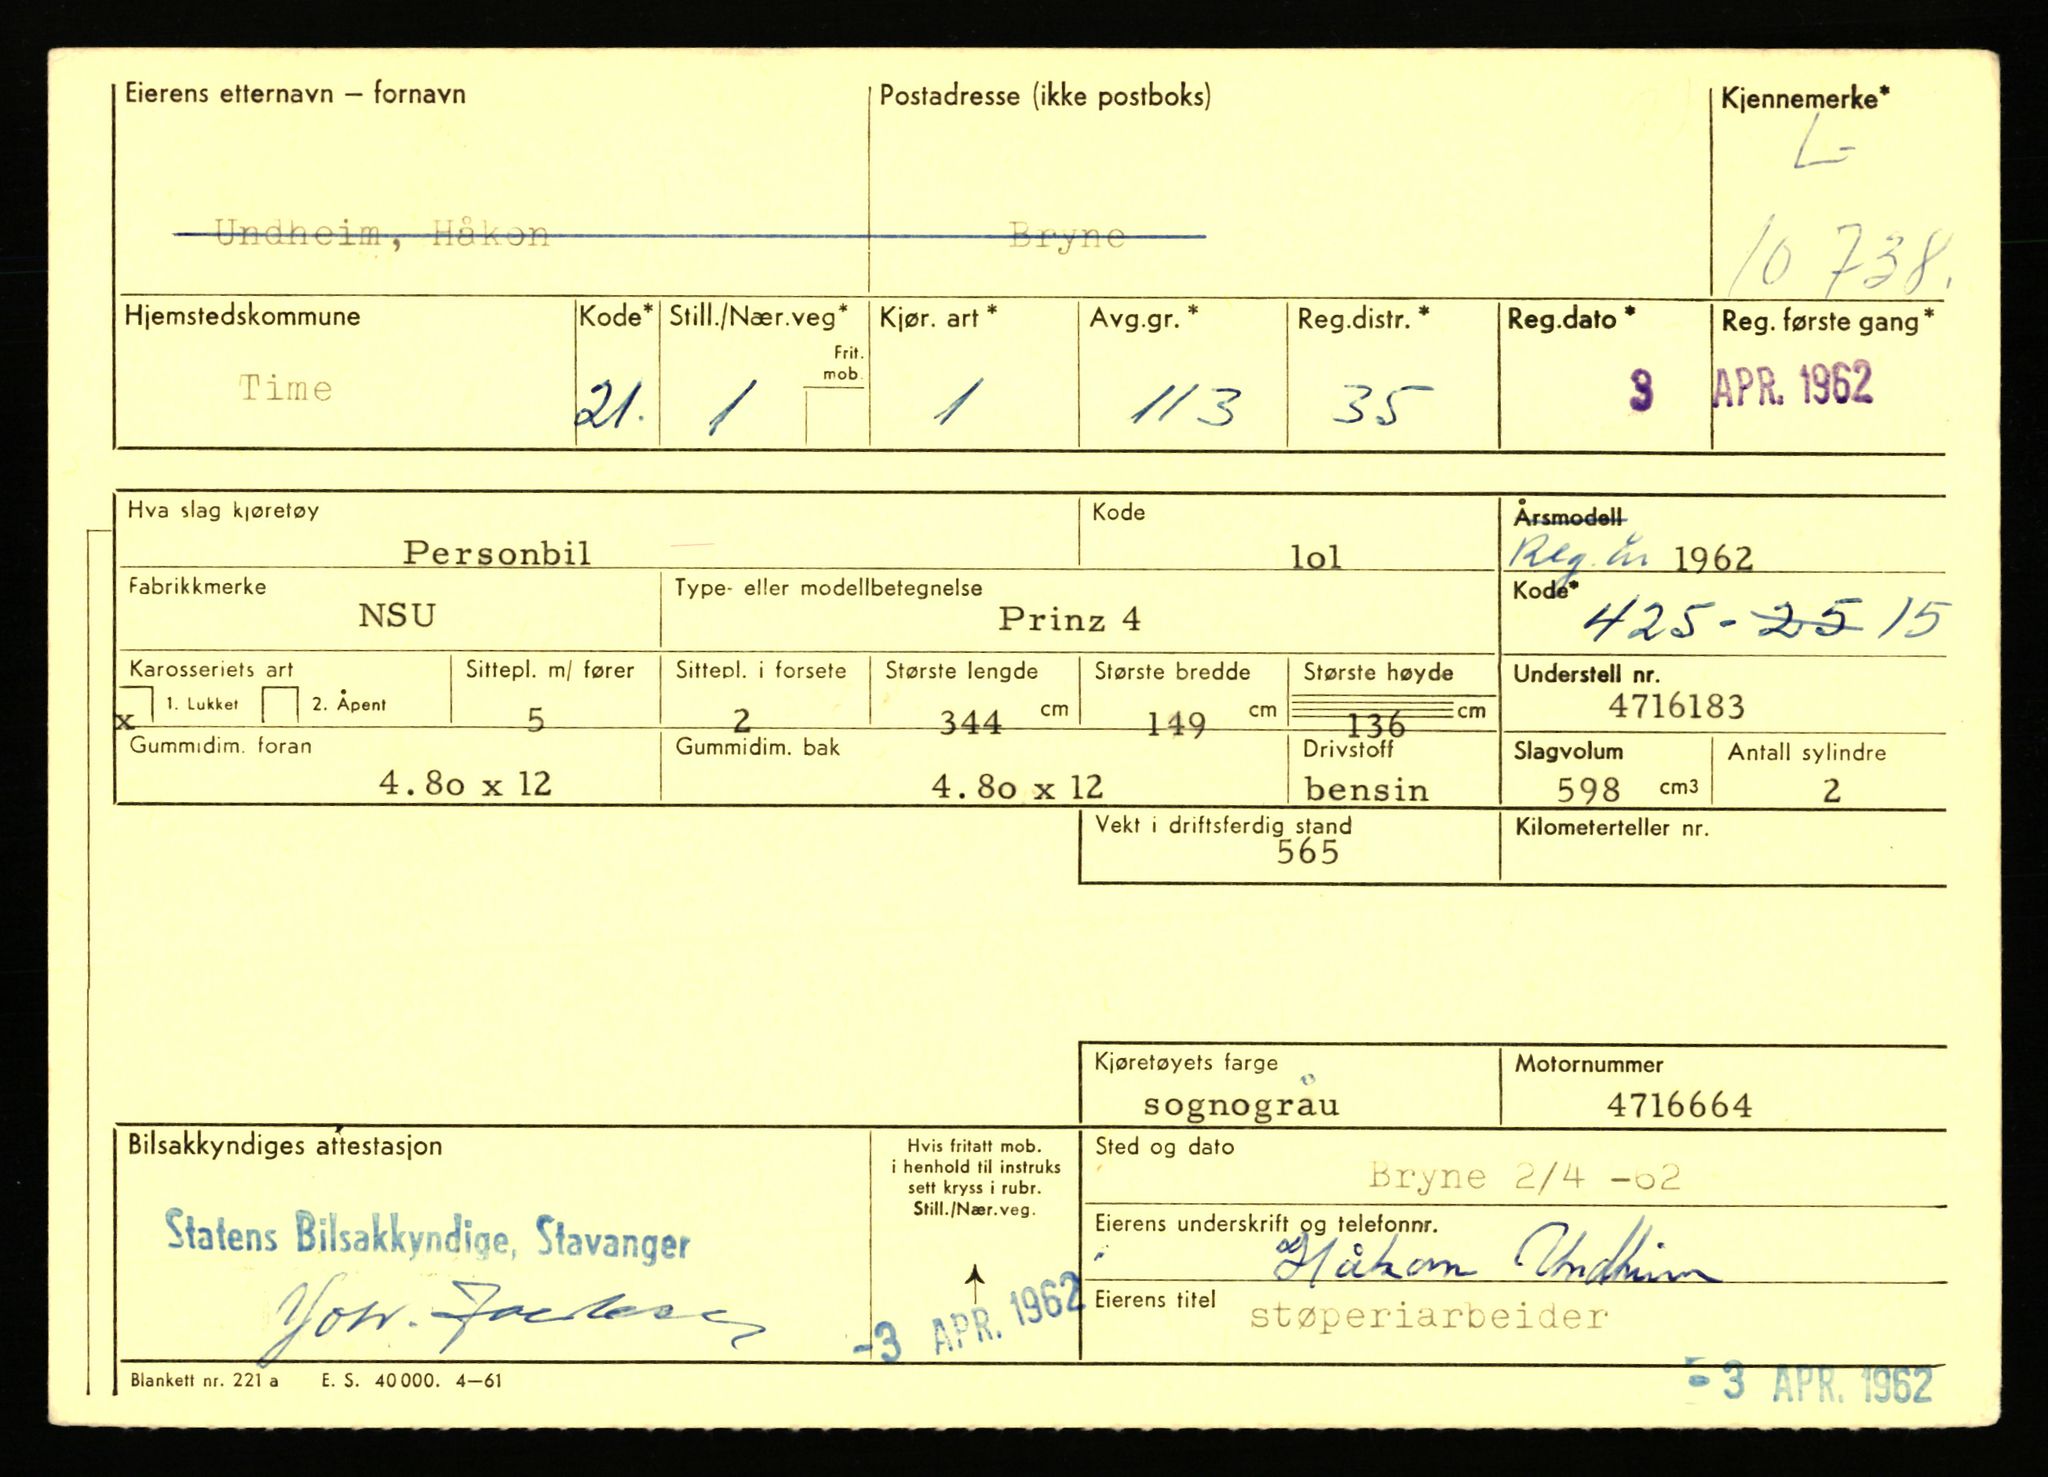 Eierens etternavn – fornavn
Postadresse (ikke postboks)
Kjennemerke*
L-
10 738.
Undheim, Håkon
Bryne
Hjemstedskommune
Kode*
Still./Nær.veg*
Frit.
mob.
Kjør. art *
Avg.gr. *
Reg.distr. *
Reg.dato *
Reg. første gang *
Time
21.
1
1
113
35
3 APR. 1962
Hva slag kjøretøy
Kode
Årsmodell
Personbil
lol
Reg. år 1962
Fabrikkmerke
Type- eller modellbetegnelse
Kode*
NSU
Prinz 4
425 - 25 15
Karosseriets art
Sittepl. m/ fører
Sittepl. i forsete
Største lengde
Største bredde
Største høyde
Understell nr.
x 1. Lukket 2. Åpent
5
2
344 cm
149 cm
136 cm
4716183
Gummidim. foran
Gummidim. bak
Drivstoff
Slagvolum
Antall sylindre
4.8o x 12
4.8o x 12
bensin
598 cm3
2
Vekt i driftsferdig stand
Kilometerteller nr.
565
Kjøretøyets farge
Motornummer
sognogråu
4716664
Bilsakkyndiges attestasjon
Hvis fritatt mob.
i henhold til instruks
sett kryss i rubr.
Still./Nær.veg.
Sted og dato
Bryne 2/4 -62
Statens Bilsakkyndige, Stavanger
Eierens underskrift og telefonnr.
Håkon Undheim
-3 APR. 1962
Eierens titel
støperiarbeider
Blankett nr. 221 a E. S. 40 000. 4–61
-3 APR. 1962